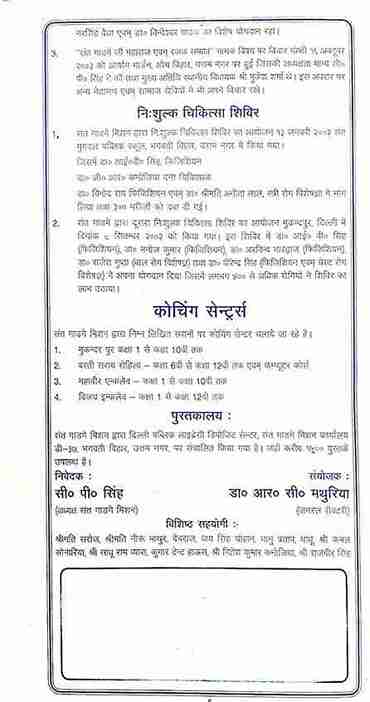 नरसिंह वैद्य एवम् डा० विन्देश्वर यादव का विशेष योगदान रहा।
3. "संत गाडगे जी महाराज एवम् रजक समाज" नामक विषय पर विचार गोष्ठी ५ अक्टूबर
२००३ को आयोग गार्डन, ओम विहार, उत्तम नगर पर हुई जिसकी अध्यक्षता मान्य सी०
पी० सिंह ने की तथा मुख्य अतिथि स्थानीय विधायक श्री मुकेश शर्मा थे। इस अवसर पर
अन्य मेहमान एवम् समाज सेवियों ने भी अपने विचार रखे।
निःशुल्क चिकित्सा शिविर
1. संत गाडगे मिशन द्वारा निःशुल्क चिकित्सा शिविर का आयोजन १३ जनवरी २००२ संत
पब्लिक स्कूल, भगवती विहार, उत्तम नगर में किया गया।
जिसमें डा० आई०वी० सिंह, फिजिशियन
डा० जी० आर० कन्नौजिया दन्त चिकित्सक
डा० विनोद राय फिजिशियन एवम् डा० श्रीमति अनीता लाल, स्त्री रोग विशेषज्ञ ने भाग
लिया तथा ३०० मरीजों को दवा दी गई।
2. संत गाडगे द्वारा दूसरा निःशुल्क चिकित्सा शिविर का आयोजन मुकन्दपुर, दिल्ली में
दिनांक ८ सितम्बर २००२ को किया गया। इस शिविर में डा० आई० वी० सिंह
(फिजिशियन), डा० मनोज कुमार (फिजिशियन), डा० अरविन्द भारद्वाज (फिजिशियन),
डा० राजेश गुप्ता (बाल रोग विशेषज्ञ) तथा डा० वीरेन्द्र सिंह (फिजिशियन एवम् चेस्ट रोग
विशेषज्ञ) ने अपना योगदान दिया जिसमें लगभग ४०० से अधिक रोगियों ने शिविर का
लाभ उठाया।
कोचिंग सेन्टर्स
संत गाडगे मिशन द्वारा निम्न लिखित स्थानों पर कोचिंग सेन्टर चलाये जा रहे है।
1. मुकन्दर पुर कक्षा 1 से कक्षा 10वी तक
2. बस्ती सराय रोहिल्ला – कक्षा 6वी से कक्षा 12वी तक एवम् कम्प्यूटर कोर्स
3. महावीर एन्कलेव – कक्षा 1 से कक्षा 10वी तक
4. विजय इन्कलेव – कक्षा 1 से कक्षा 12वी तक
पुस्तकालय :
संत गाडगे मिशन द्वारा दिल्ली पब्लिक लाइब्रेरी डिपोजिट सेन्टर, संत गाडगे मिशन कार्यालय
डी-३७, भगवती विहार, उत्तम नगर, पर संचालित किया गया है। जहाँ करीब १५०० पुस्तकें
उपलब्ध हैं।
निवेदक : संयोजक :
सी० पी० सिंह डा० आर० सी० मथुरिया
(अध्यक्ष संत गाडगे मिशन) (जनरल सैक्रेटरी)
विशिष्ठ सहयोगी :-
श्रीमति सरोज, श्रीमति नीरू माथुर, देवराज, जय सिंह चौहान, भानु प्रताप, माधू, श्री कमल
सोनारिया, श्री साधू राम व्यास, कुमार टेन्ट हाऊस, श्री गिरीश कुमार कनोजिया, श्री राजवीर सिंह